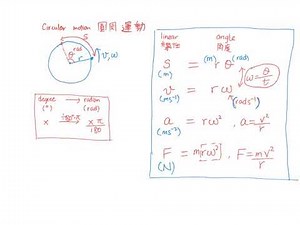 Circular motion 圓周運動
S
θ rad
r
v, ω
degree → radian
(°) (rad)
x ÷180°×π xπ
180
linear angle
角度
S = r θ (rad)
(m) (m)
ω = θ
t
v = r ω
(ms⁻¹) (rads⁻¹)
a = rω² , a = v²
(ms⁻²) r
F = m[rω²] , F = mv²
(N) r